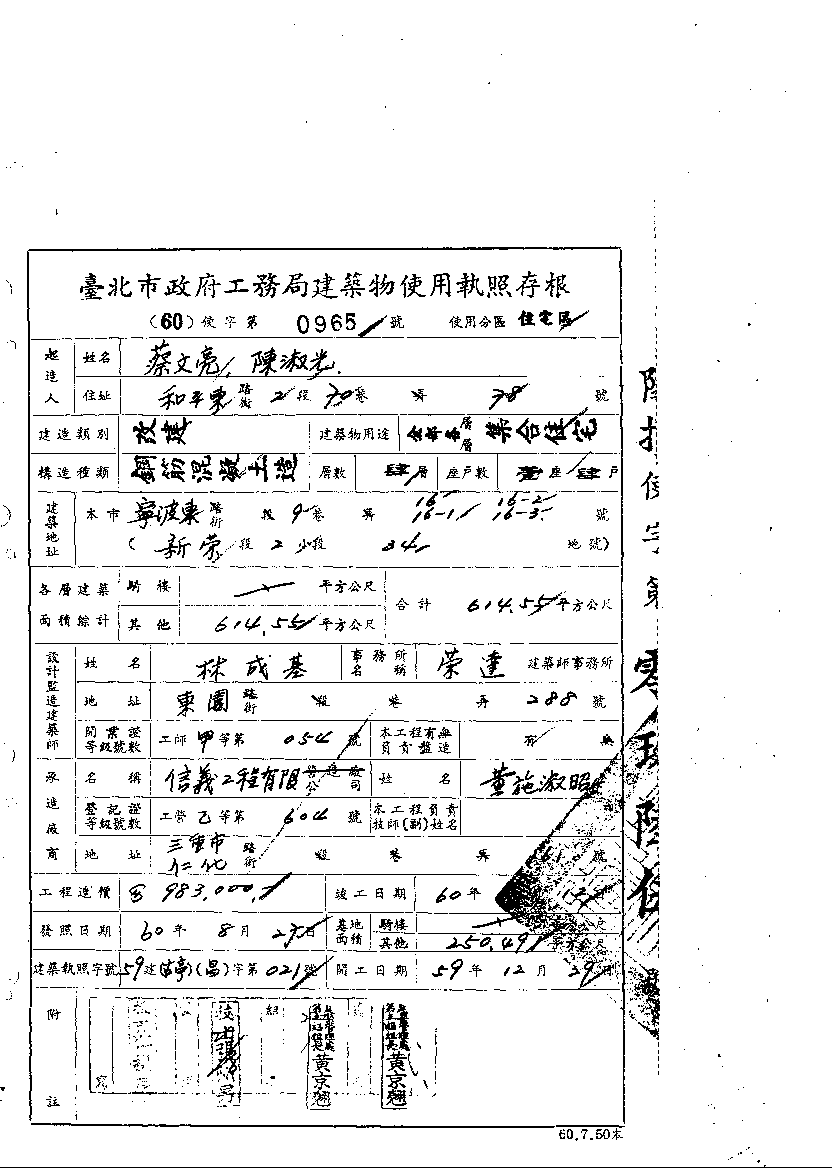 臺北市政府工務局建築物使用執照存根
(60)使字第 0965 號 使用分區 住宅區
起造人 姓名 蔡文亮、陳淑光
住址 和平東路街 2段 70巷 弄 38 號
建造類別 改建 建築物用途 全部各層 集合住宅
構造種類 鋼筋混凝土造 層數 肆層 座戶數 壹座 肆戶
建築地址 本市 寧波東路街 段 9巷 弄 16 16-1 16-2 16-3 號
(新榮段 2小段 34 地號)
各層建築面積綜計 騎樓 平方公尺 合計 614.55平方公尺
其他 614.55平方公尺
設計監造建築師 姓名 林成基 事務所名稱 榮達 建築師事務所
地址 東園路街 段 巷 弄 288 號
開業證等級號數 工師 甲等第 054 號 本工程有無負責監造 有 無
承造廠商 名稱 信義工程有限公司 姓名 黃施淑昭
登記證等級號數 工營 乙等第 604 號 本工程負責技師(副)姓名
地址 三重市仁化路街 段 巷 弄 號
工程造價 983,000. 竣工日期 60年
發照日期 60年 8月 日 基地面積 騎樓 平方公尺
其他 250.49 平方公尺
建築執照字號 59建 字第021號 開工日期 59年 12月 29日
附註
黃京翹 黃京翹
60.7.50本